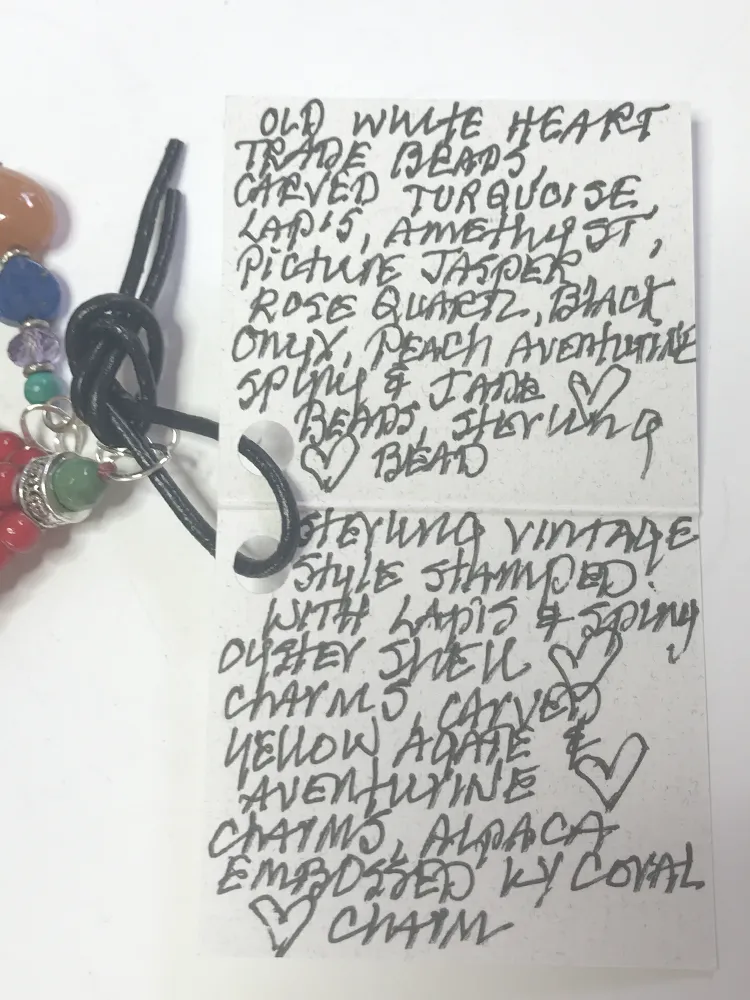 OLD WHITE HEART
TRADE BEADS,
CARVED TURQUOISE,
LAPIS, AMETHYST,
PICTURE JASPER
ROSE QUARTZ, BLACK
ONYX, PEACH AVENTURINE
SPINY & JADE ♡
BEADS, STERLING
♡ BEAD
STERLING VINTAGE
STYLE STAMPED
WITH LAPIS & SPINY
OYSTER SHELL ♡
CHARMS, CARVED
YELLOW AGATE &
AVENTURINE ♡
CHARMS, ALPACA
EMBOSSED W/ CORAL
♡ CHARM